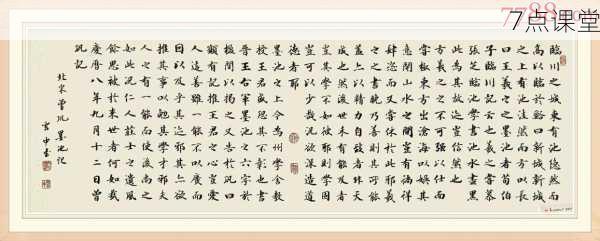 7788
7点课堂
臨川之城東有池隱然而
高以臨於谿曰新城新城
之上有池洼然而方以長
曰王羲之之墨池者荀伯
子臨川記云也羲之嘗慕
張芝臨池學書池水盡黑
此為其故迹豈信然也
方羲之之不可强以仕而
嘗極東方出滄海以娛其
意於山水之間豈有徜徉
肆恣而又嘗休於此邪羲
之之書晚乃善則其所能
蓋上以精力自致者非天
成也然後世未有能及者
豈其學不如彼邪則學固
豈可以少哉況欲深造道
德者耶
墨池之上今為州學舍教
授王君盛恐其不彰也書
晉王右軍墨池之六字於
楹間以揭之又告於巩曰
願有記推王君之心豈愛
人之善雖一能不以廣而
因以及乎其迹邪其亦欲
推其事以勉其學者邪夫
人之有一能而使後尚之
如此況仁人莊士之遺風
餘思被於來世者何如哉
慶曆八年九月十二日曾
巩記
北宋曾巩 墨池記
雲中書